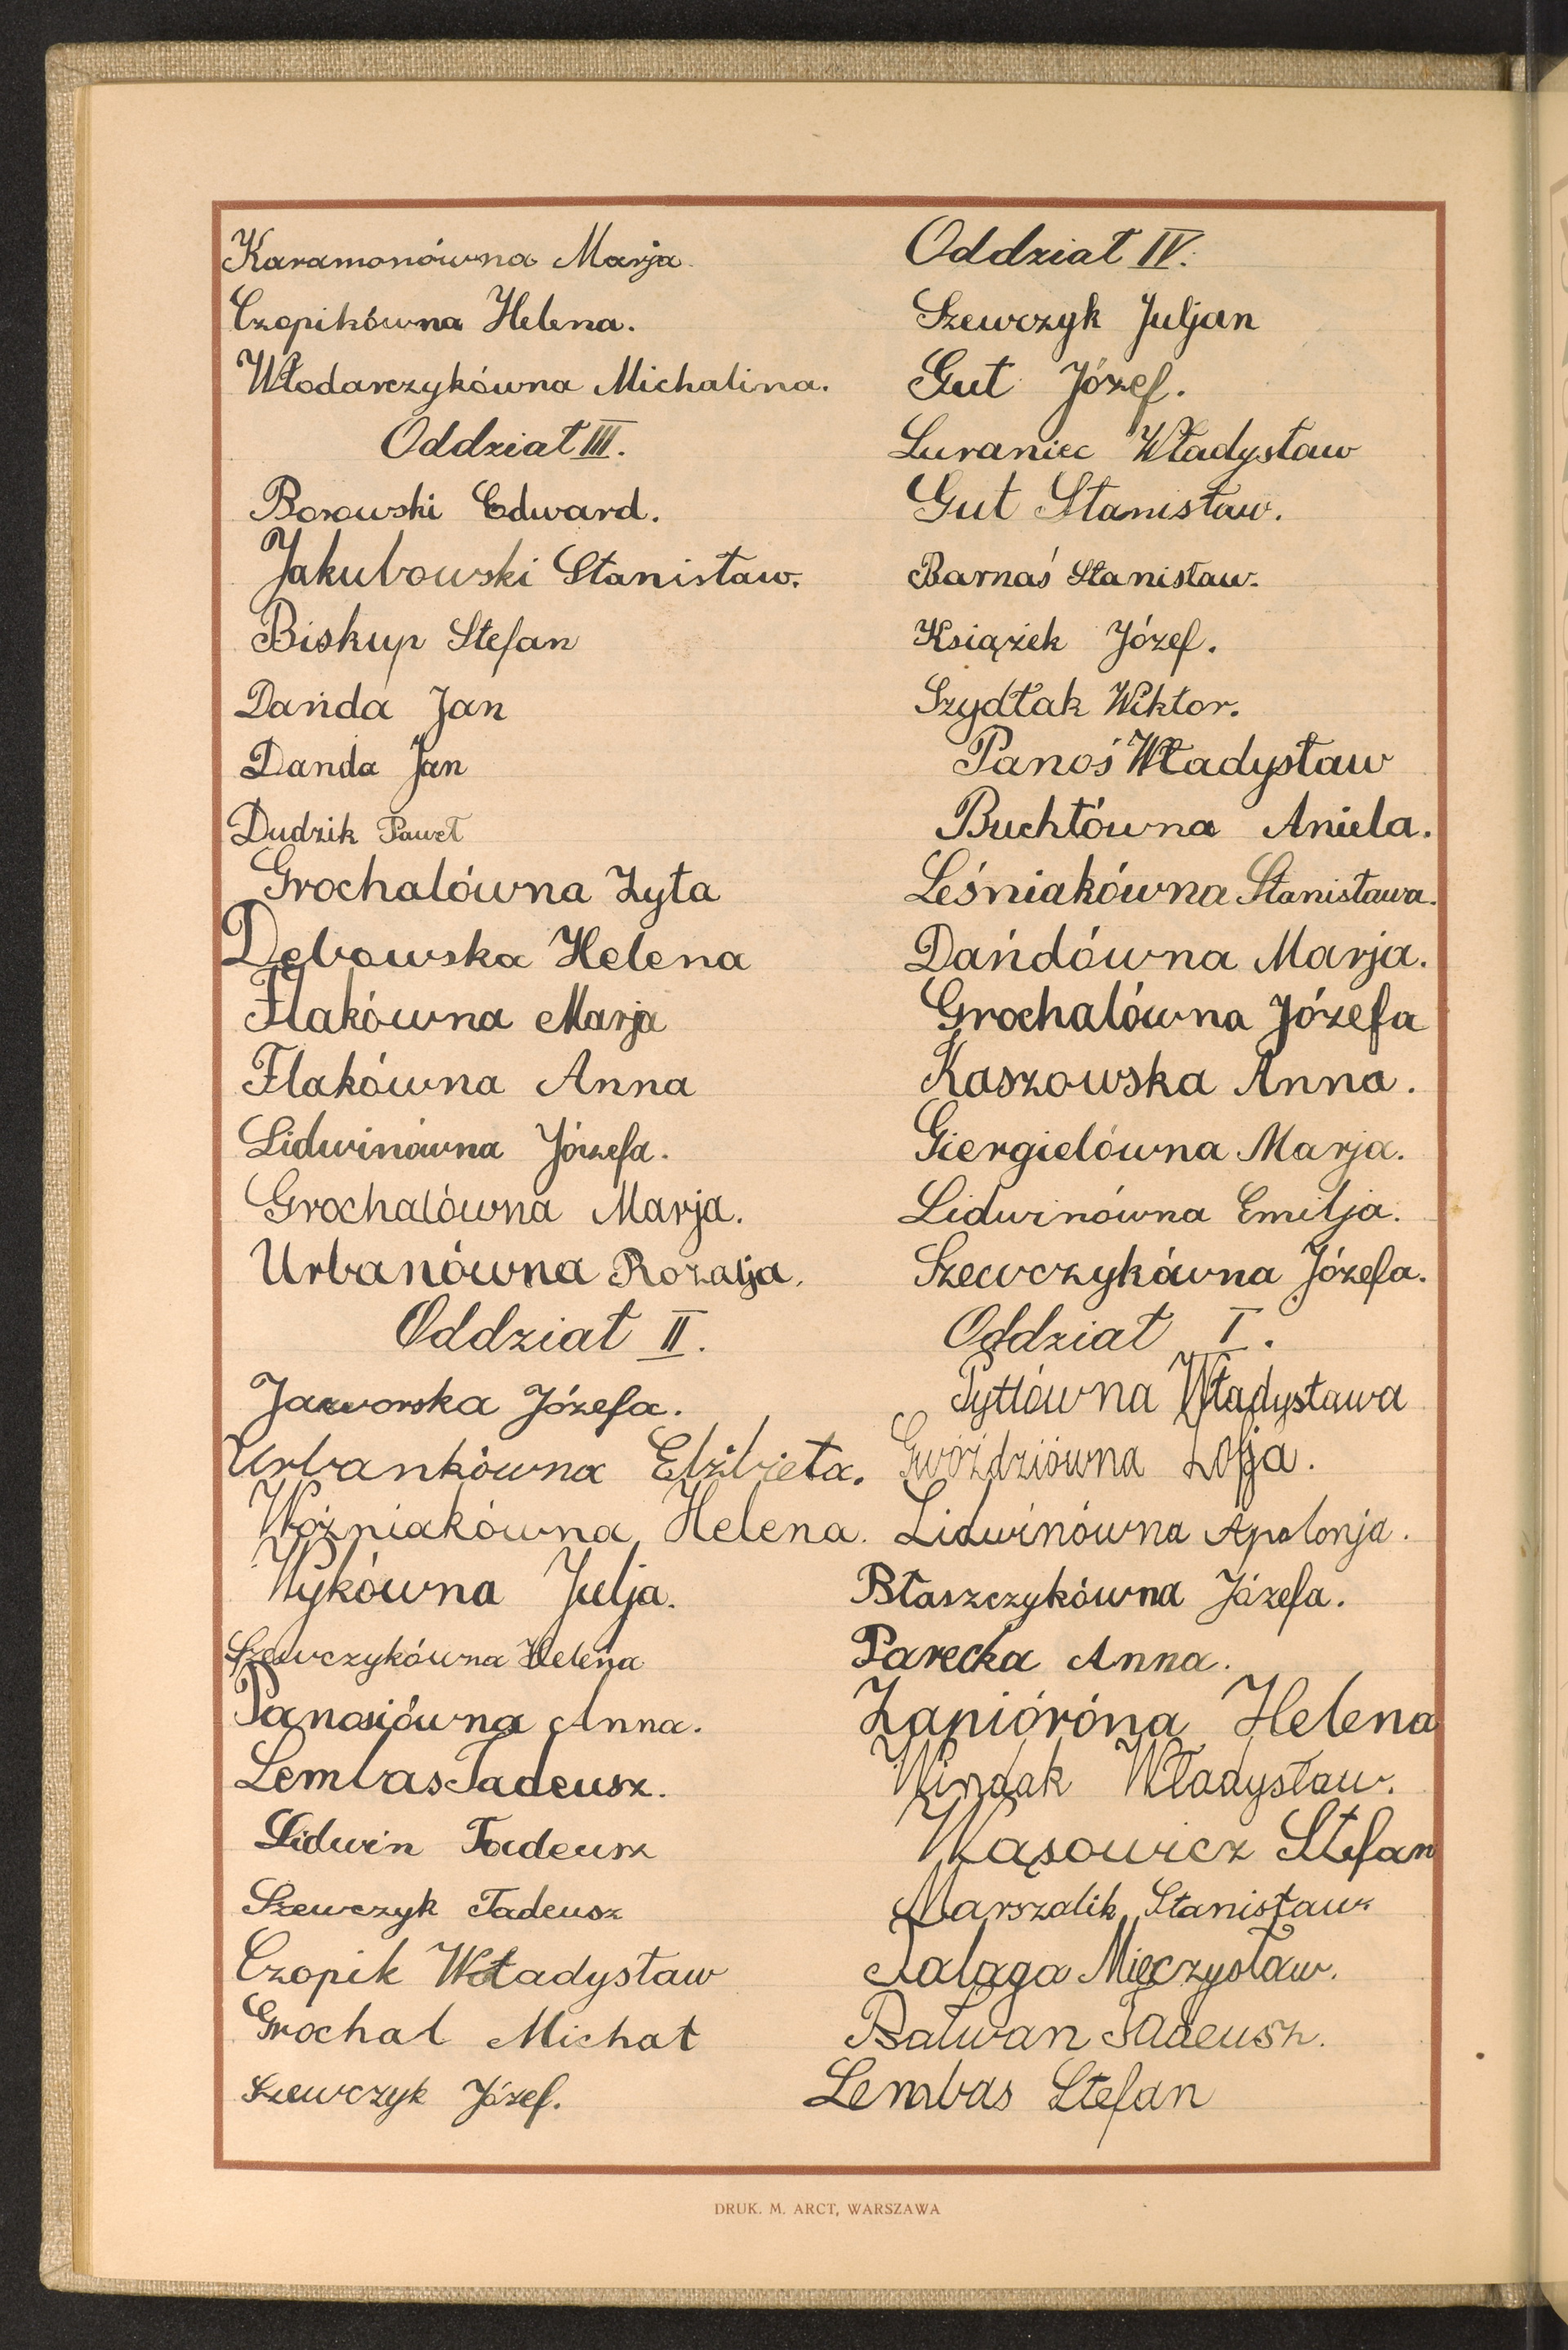 Karamonówna Marja.
Czopikówna Helena.
Włodarczykówna Michalina.
Oddział III.
Borowski Edward.
Jakubowski Stanisław.
Biskup Stefan
Dańda Jan
Danda Jan
Dudzik Paweł
Grochalówna Zyta
Dębowska Helena
Flakówna Marja
Flakówna Anna
Lidwinówna Józefa.
Grochalówna Marja.
Urbanówna Rozalja.
Oddział II.
Jaworska Józefa.
Urbankówna Elżbieta.
Woźniakówna Helena.
Wykówna Julja.
Szewczykówna Helena
Panosiówna Anna.
Lembas Tadeusz.
Lidwin Tadeusz
Szewczyk Tadeusz
Czopik Władysław
Grochal Michał
Szewczyk Józef.
Oddział IV.
Szewczyk Juljan
Gut Józef.
Luraniec Władysław
Gut Stanisław.
Barnaś Stanisław.
Książek Józef.
Szydłak Wiktor.
Panoś Władysław
Buchtówna Aniela.
Leśniakówna Stanisława.
Dańdówna Marja.
Grochalówna Józefa
Kaszowska Anna.
Giergielówna Marja.
Lidwinówna Emilja.
Szewczykówna Józefa.
Oddział I.
Pytlówna Władysława
Gwóździówna Zofja.
Lidwinówna Apolonja.
Błaszczykówna Józefa.
Parecka Anna.
Zapióróna Helena
Windak Władysław.
Wąsowicz Stefan
Marszalik Stanisław
Talaga Mieczysław.
Bałwan Tadeusz.
Lembas Stefan
DRUK. M. ARCT, WARSZAWA